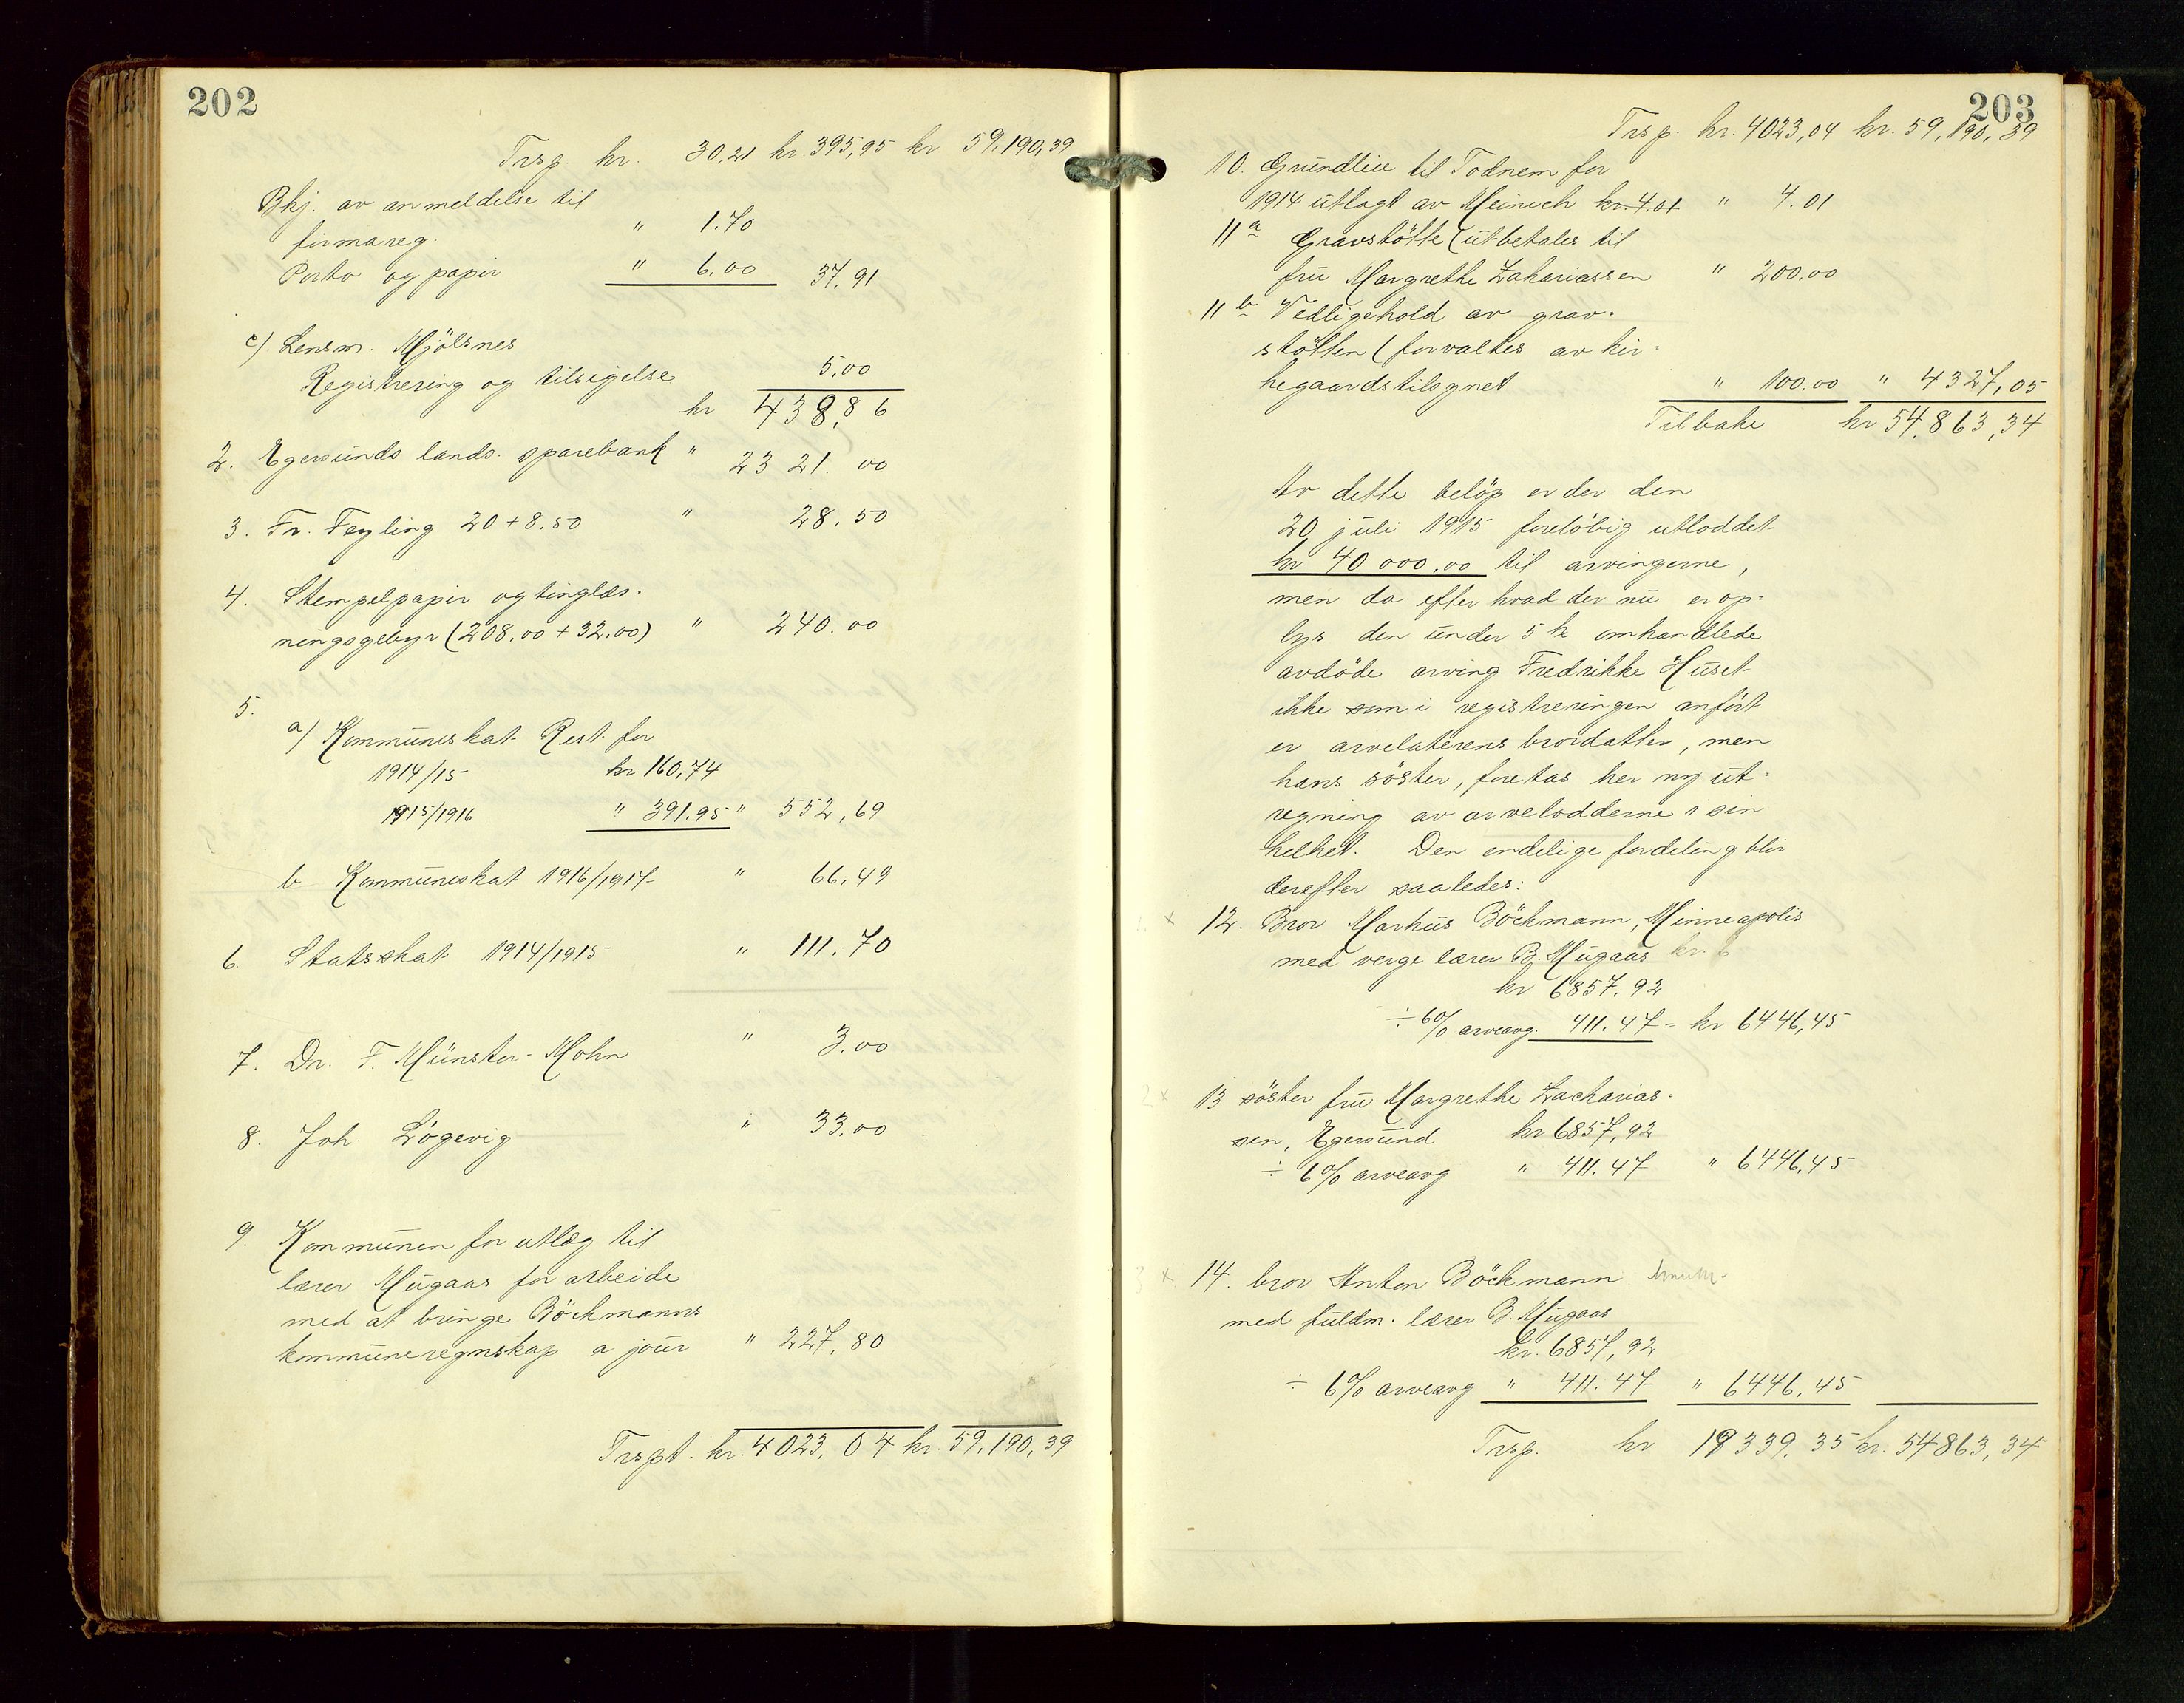 202
Trsp kr. 30,21 kr. 395,95 kr 59,190,39
Bkj. av anmeldelse til
firmareg. " 1.70
Porto og papir " 6,00 37,91
c). Lensm. Mjölsnes
Registrering og tilsigelse 5,00
kr 438,86
2. Egersunds lands. sparebank " 2321.00
3. Fr. Feyling 20+8.50 " 28,50
4. Stempelpapir og tinglæs-
ningsgebyr (208,00 + 32.00) " 240.00
5.
a) Kommuneskat Rest. for
1914/15 kr 160,74
1915/1916 " 391.95 " 552,69
b Kommuneskat 1916/1917 " 66,49
6. Statsskat 1914/1915 " 111.70
7. Dr. F. Münster-Mohn " 3.00
8. Joh. Lögevig " 33,00
9. Kommunen for utlæg til
lærer Mugaas for arbeide
med at bringe Böckmanns
kommuneregnskap a jour " 227,80
Trspt. kr. 4023,04 kr. 59,190,39
203
Trsp. kr. 4023,04 kr. 59,190,39
10. Grundleie til Todnem for
1914 utlagt av Meinich kr. 4.01 " 4.01
11a Gravstötte (utbetales til
fru Margrethe Zakariassen " 200.00
11b Vedligehold av grav-
stötten (forvaltes av kir-
kegaardstilsynet " 100.00 " 4327,05
Tilbake kr 54,863,34
Av dette belöp er der den
20 juli 1915 foreløbig utloddet
kr 40000,00 til arvingerne,
men da efter hvad der nu er op-
lys den under 5 k omhandlede
avdöde arving Fredrikke Huset
ikke som i registreringen anfört
er arvelaterens brordatter, men
hans söster, foretas her ny ut-
regning av arvelodderne i sin
helhet. Den endelige fordeling blir
derefter saaledes:
12. Bror Markus Böckmann, Minneapolis
med verge lærer B. Mugaas kr. 6
kr 6857.92
÷ 6% arveavg. 411.47 = kr 6446,45
13 söster fru Margrethe Zacharias-
sen, Egersund kr 6857,92
÷ 6% arveavg " 411.47 " 6446,45
14. bror Anton Böckmann
med fuldm. lærer B. Mugaas
kr. 6857,92
÷ 6% arveavg " 411.47 " 6446.45
Trsp. kr 19339.35 kr. 54863,34